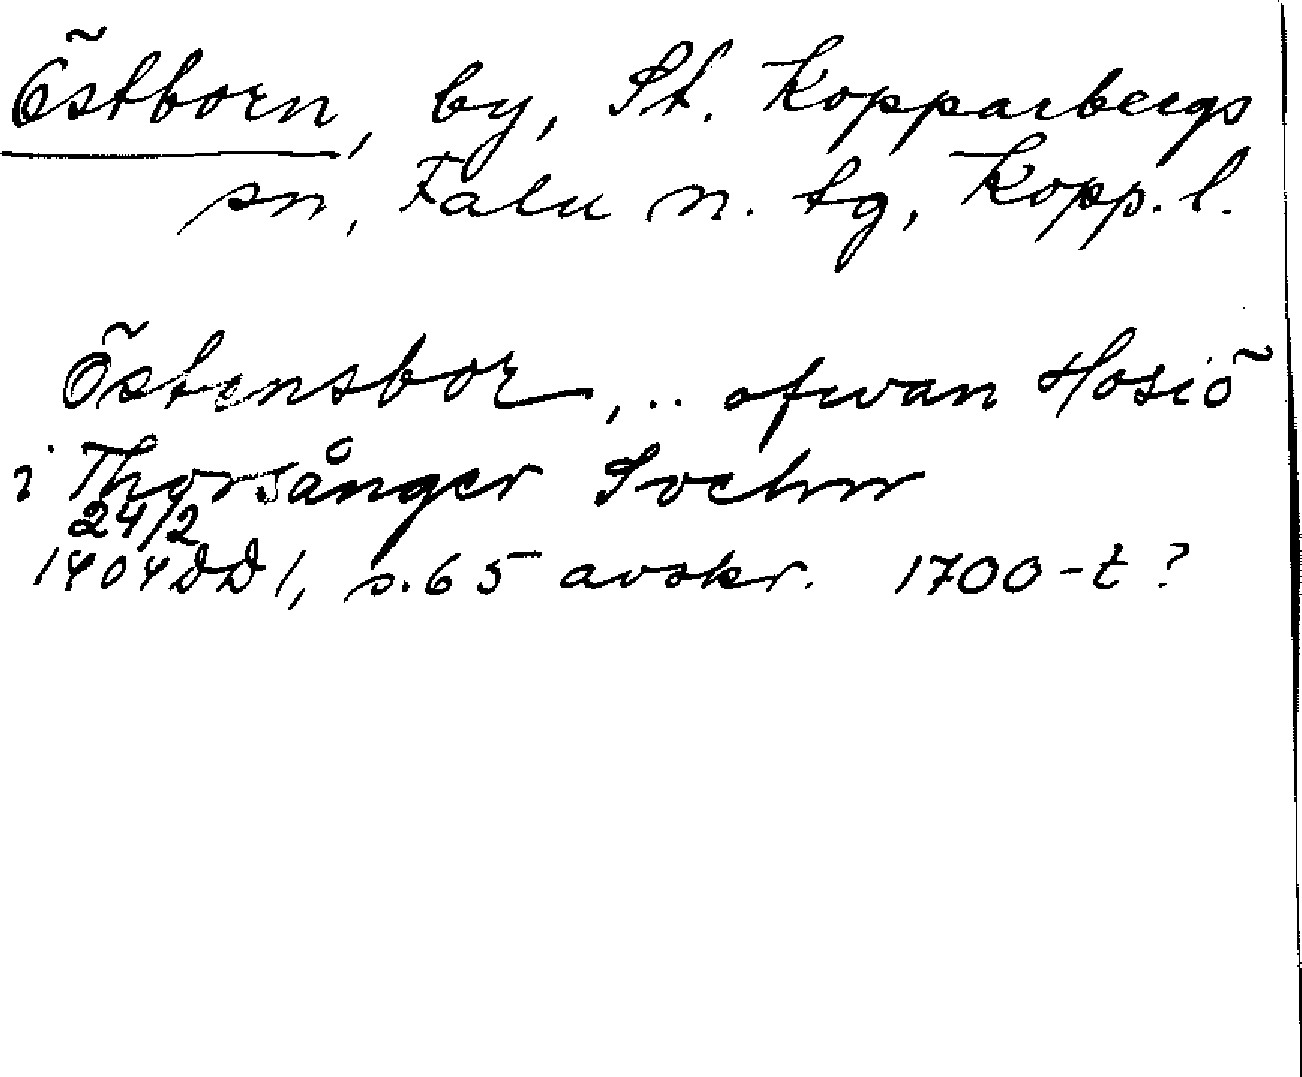 Östborn, by, St. Kopparbergs
sn, Falu n. tg, Kopp. l.
Östensbor, .. ofwan Hosiö
i Thorsånger Sochn
24/2
1404 DD 1, s. 65 avskr. 1700-t?